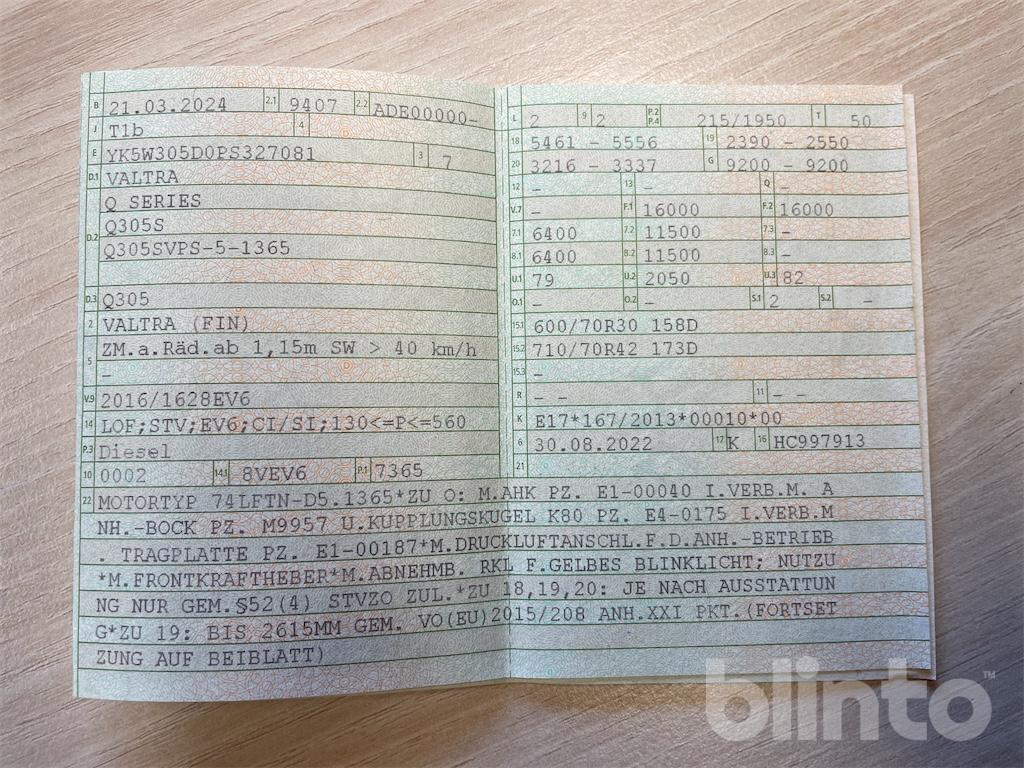 B 21.03.2024 2.1 9407 2.2 ADE00000-
J T1b 4
E YK5W305D0PS327081 3 7
D.1 VALTRA
Q SERIES
D.2 Q305S
Q305SVPS-5-1365
D.3 Q305
2 VALTRA (FIN)
5 ZM.a.Räd.ab 1,15m SW > 40 km/h
–
V.9 2016/1628EV6
14 LOF;STV;EV6;CI/SI;130<=P<=560
P.3 Diesel
10 0002 14.1 8VEV6 P.1 7365
L 2 9 2 P.2 P.4 215/1950 T 50
18 5461 – 5556 19 2390 – 2550
20 3216 – 3337 G 9200 – 9200
12 – 13 – Q –
V.7 – F.1 16000 F.2 16000
7.1 6400 7.2 11500 7.3 –
8.1 6400 8.2 11500 8.3 –
U.1 79 U.2 2050 U.3 82
O.1 – O.2 – S.1 2 S.2 –
15.1 600/70R30 158D
15.2 710/70R42 173D
15.3 –
R – – 11 – –
K E17*167/2013*00010*00
6 30.08.2022 17 K 16 HC997913
21
22 MOTORTYP 74LFTN-D5.1365*ZU O: M.AHK PZ. E1-00040 I.VERB.M. A
NH.-BOCK PZ. M9957 U.KUPPLUNGSKUGEL K80 PZ. E4-0175 I.VERB.M
. TRAGPLATTE PZ. E1-00187*M.DRUCKLUFTANSCHL.F.D.ANH.-BETRIEB
*M.FRONTKRAFTHEBER*M.ABNEHMB. RKL F.GELBES BLINKLICHT; NUTZU
NG NUR GEM.§52(4) STVZO ZUL.*ZU 18,19,20: JE NACH AUSSTATTUN
G*ZU 19: BIS 2615MM GEM. VO(EU)2015/208 ANH.XXI PKT.(FORTSET
ZUNG AUF BEIBLATT)
blinto™